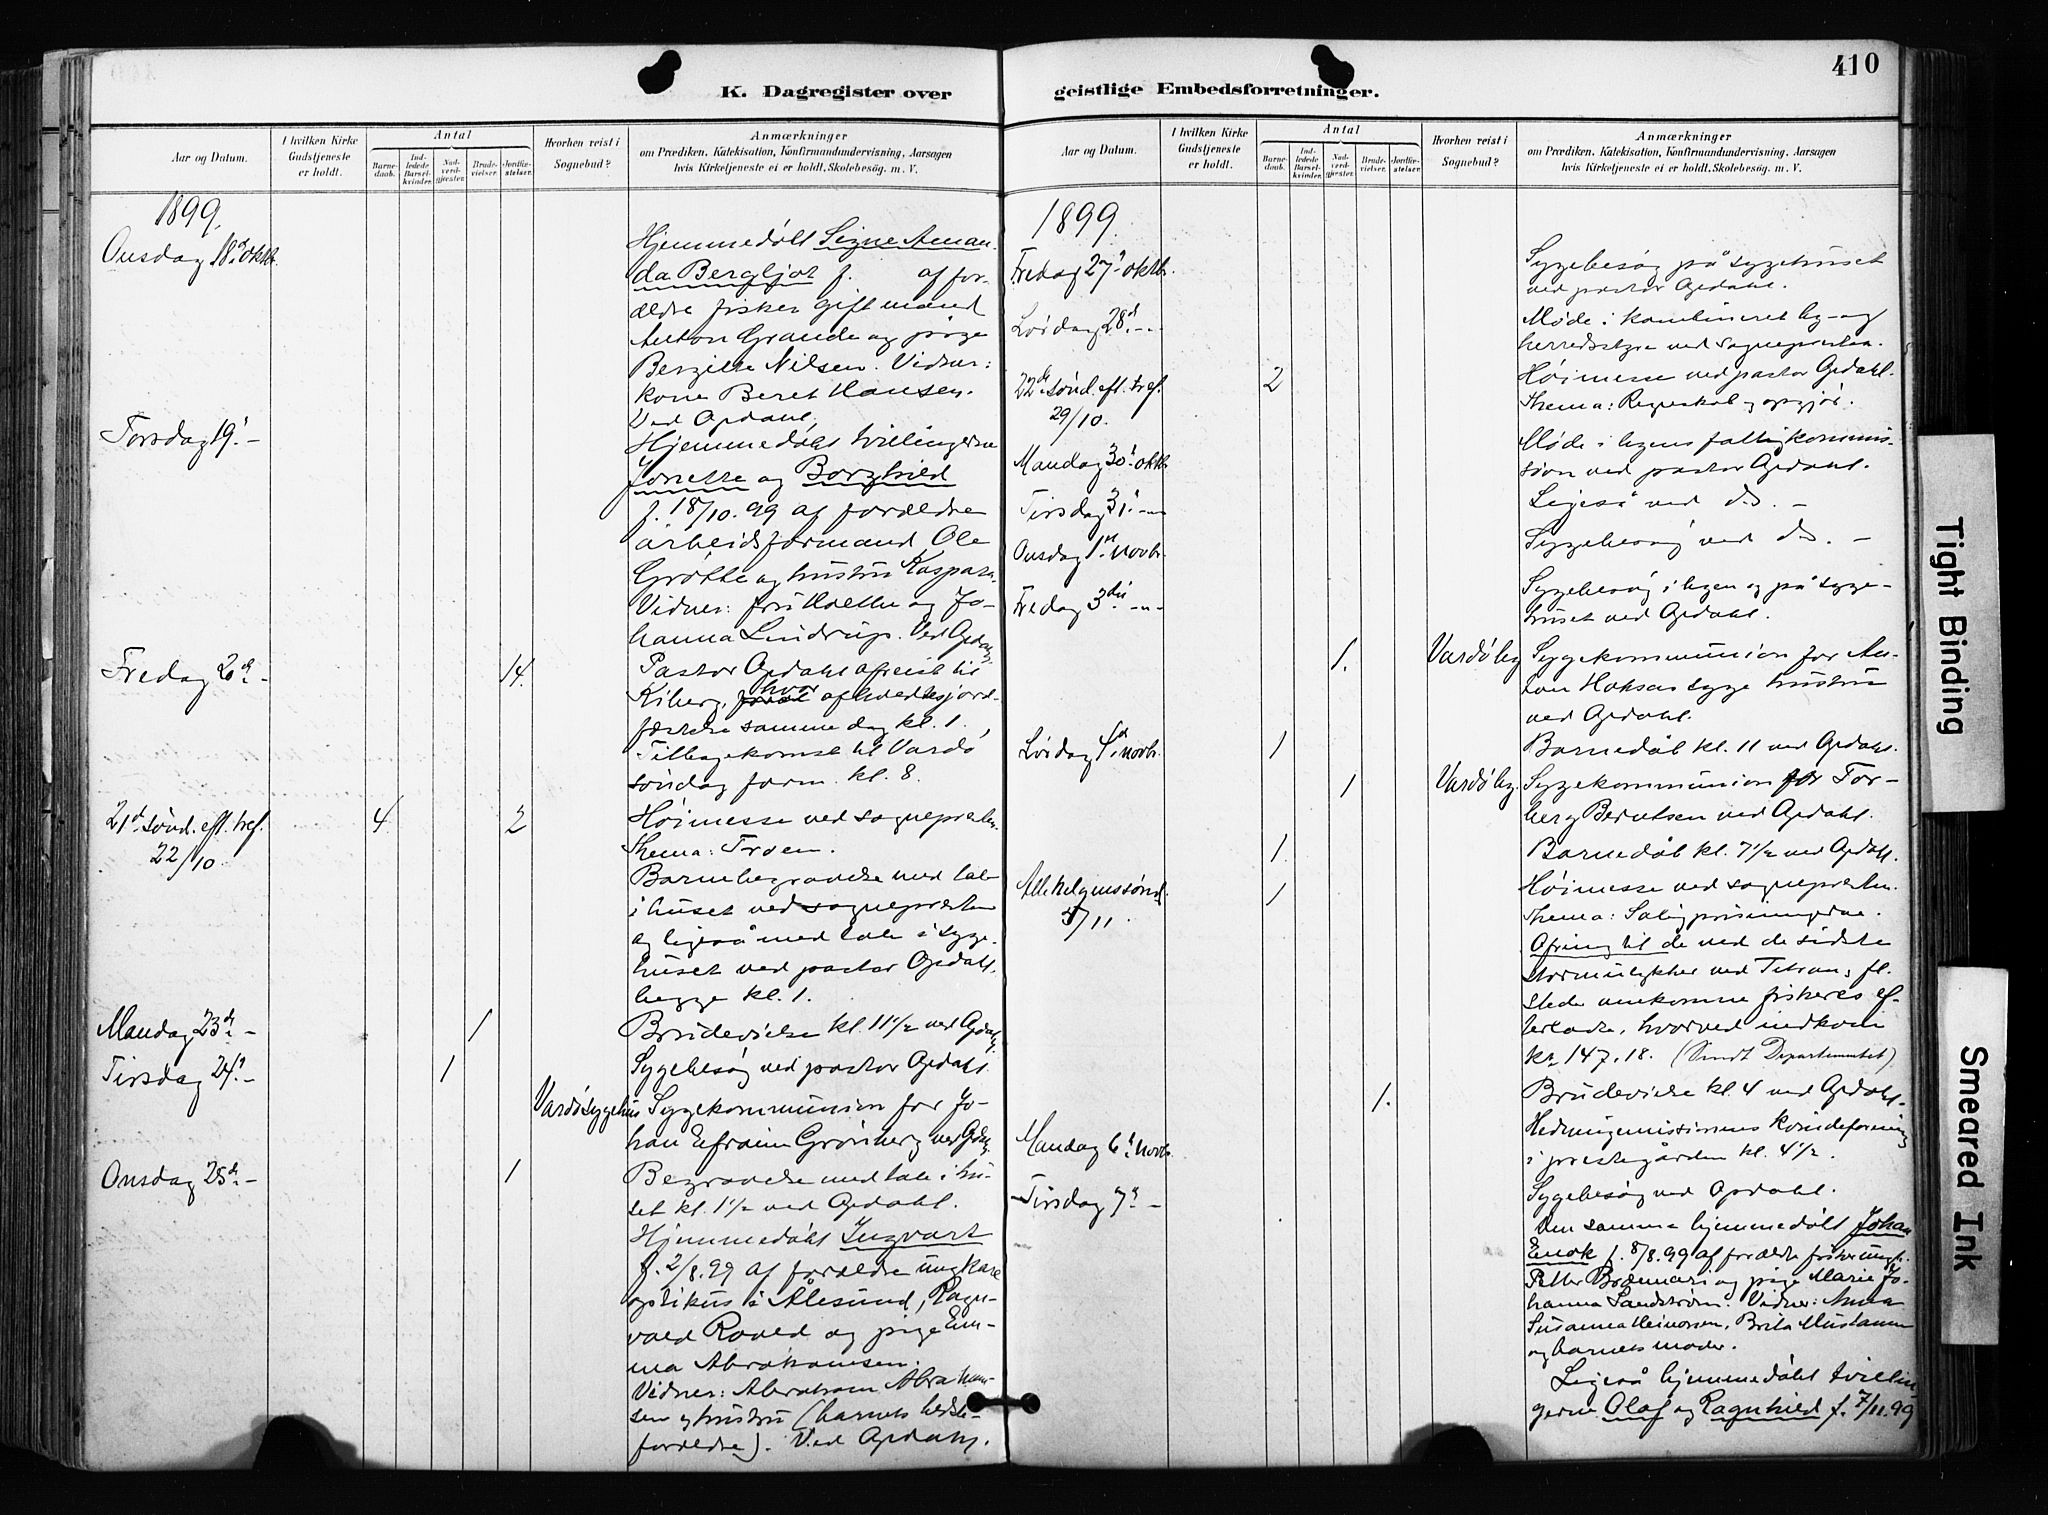 410
K. Dagregister over
geistlige Embedsforretninger.
Aar og Datum.
I hvilken Kirke Gudstjeneste er holdt.
Antal
Barnedaab.
Indledede Barselkvinder.
Nadverdgjæster.
Brudevielser.
Jordfæstelser.
Hvorhen reist i Sognebud?
Anmærkninger
om Prædiken, Katekisation, Konfirmandundervisning, Aarsagen
hvis Kirketjeneste ei er holdt, Skolebesøg. m. V.
1899.
Onsdag 18d oktb.
Hjemmedøbt Signe Aman-
da Bergljot f. af for-
ældre fisker gift mand
Anton Grande og pige
Bergitte Nilsen. Vidner:
kone Beret Hansen.
Ved Opdahl.
Torsdag 19. -
Hjemmedøbt tvillingerne
Jonette og Borghild
f. 18/10.99 af forældre
arbeidsformand Ole
Grøtte og hustru Kaspara.
Vidner: fru Holthe og Jo-
hanna Lindrup. Ved Opdahl.
Fredag 20d -
14.
Pastor Opdahl afreist til
Kiberg, hvor afholdtes jord-
fæstelse samme dag kl. 1.
Tilbagekomst til Vardø
søndag form. kl. 8.
21d sønd. eft. tref.
22/10.
4
2
Høimesse ved sognepresten.
Thema: Troen.
Barnebegravelse med tale
i huset ved sognepresten
og ligeså med tale i syge-
huset ved pastor Opdahl,
begge kl. 1.
Mandag 23d -
1
Brudevielse kl. 11 1/2 ved Opdahl.
Tirsdag 24. -
1
Sygebesøg ved pastor Opdahl.
Vardø sygehus
Sygekommunion for Jo-
han Efraim Grønberg ved Opdahl.
Onsdag 25d -
1
Begravelse med tale i hu-
set kl. 1 1/2 ved Opdahl.
Hjemmedøbt Ingvart
f. 2/8.99 af forældre ungkarl
optikus i Ålesund, Ragn-
vald Roald og pige Em-
ma Abrahamsen.
Vidner: Abraham Abraham-
sen og hustru (barnets bedste-
forældre). Ved Opdahl.
Aar og Datum.
I hvilken Kirke Gudstjeneste er holdt.
Antal
Barnedaab.
Indledede Barselkvinder.
Nadverdgjæster.
Brudevielser.
Jordfæstelser.
Hvorhen reist i Sognebud?
Anmærkninger
om Prædiken, Katekisation, Konfirmandundervisning, Aarsagen
hvis Kirketjeneste ei er holdt, Skolebesøg. m. V.
1899.
Fredag 27. oktb.
Sygebesøg på sygehuset
ved pastor Opdahl.
Lørdag 28d - -
Møde i kombineret by- og
herredsstyre ved sognepresten.
22d sønd. eft. tref.
29/10.
2
Høimesse ved pastor Opdahl.
Thema: Regnskab og opgjør.
Mandag 30. oktb.
Møde i byens fattigkommis-
sion ved pastor Opdahl.
Tirsdag 31. - -
Ligeså ved ds. -
Onsdag 1ste novb.
Sygebesøg ved ds. -
Fredag 3die - -
Sygebesøg i byen og på syge-
huset ved Opdahl.
1.
Vardø by
Sygekommunion for An-
ton Hoksas syge hustru
ved Opdahl.
Lørdag 4d novb.
1
Barnedåb kl. 11 ved Opdahl.
1
Vardø by.
Sygekommunion for Tor-
berg Berntsen ved Opdahl.
1
Barnedåb kl. 7 1/2 ved Opdahl.
Allehelgenssønd.
5/11.
1
Høimesse ved sognepresten.
Thema: Saligprisningerne.
Ofring til de ved de sidste
stormulykker ved Titran, fl.
steder omkomne fiskeres ef-
terladte, hvorved indkom
kr. 147.18. (Sendt Departementet)
1.
Brudevielse kl. 4 ved Opdahl.
Mandag 6. novb.
Hedningemissionens kvindeforening
i prestegården kl. 4 1/2.
Tirsdag 7. -
Sygebesøg ved Opdahl.
Den samme hjemmedøbt Johan
Enok f. 8/8.99 af forældre fisker ungk.
Petter Brænmari og pige Marie Jo-
hanna Sandstrøm. Vidner: Anna
Susanna Heinonen, Brita Mustamm
og barnets moder.
Ligeså hjemmedøbt tvillin-
gerne Olaf og Ragnhild f. 7/11.99
Tight Binding
Smeared Ink